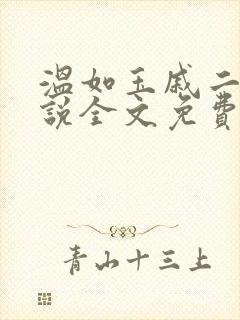 温如玉戚二
説全文免費
青山十三上